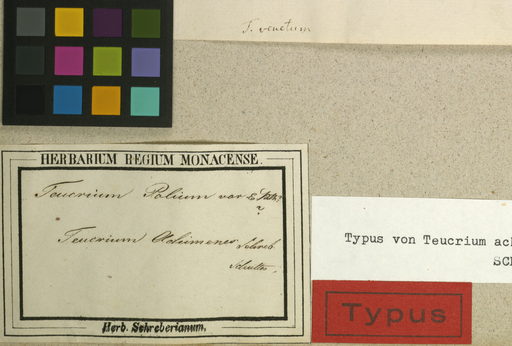 T. venetum
HERBARIUM REGIUM MONACENSE.
Teucrium Polium var
?
Teucrium Schreb.
Herb. Schreberianum.
Typus von Teucrium ach
SCH
Typus